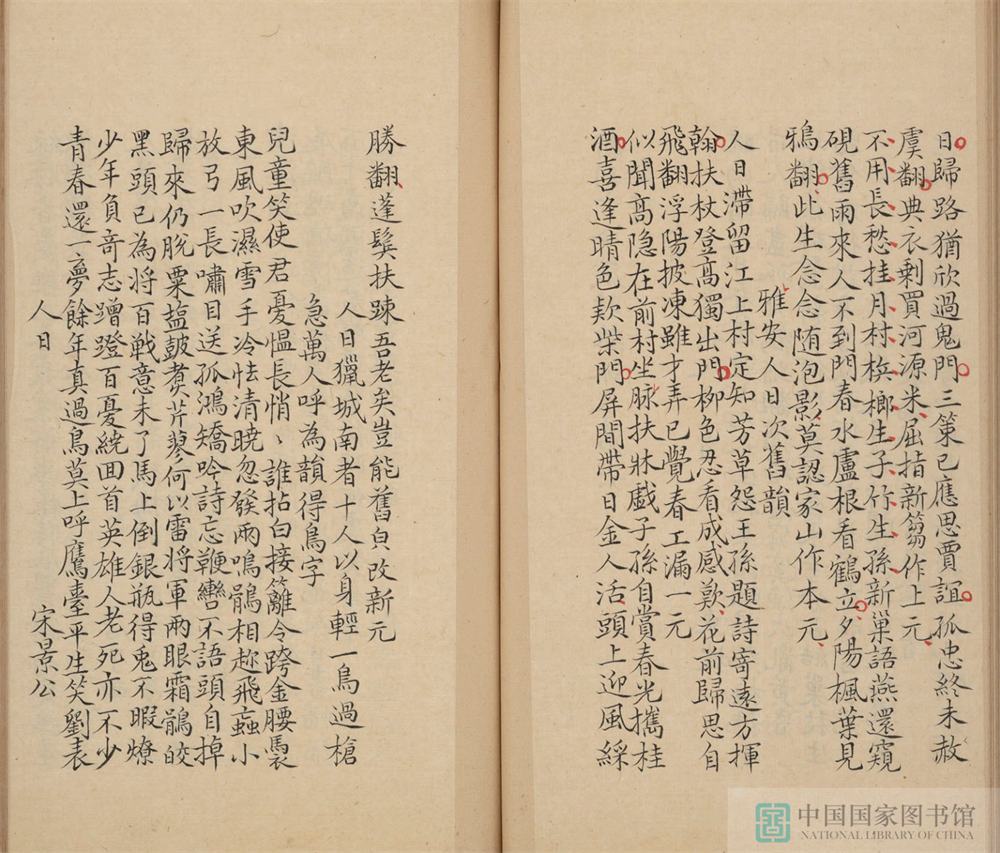 日歸路猶欣過鬼門三策已應思賈誼孤忠終未赦
虞翻典衣剩買河源米屈指新蒭作上元
不用長愁挂月村檳榔生子竹生孫新巢語燕還窺
硯舊雨來人不到門春水盧根看鶴立夕陽楓葉見
鴉翻此生念念随泡影莫認家山作本元
雅安人日次舊韻
人日滯留江上村定知芳草怨王孫題詩寄遠方揮
翰扶杖登高獨出門柳色忍看成感歎花前歸思自
飛翻浮陽披凍雖才弄已覺春工漏一元
似聞高隐在前村坐脉扶牀戲子孫自賞春光攜桂
酒喜逢晴色款柴門屏間帶日金人活頭上迎風綵
勝翻蓬鬓扶踈吾老矣豈能舊皃改新元
人日獵城南者十人以身輕一鳥過槍
急萬人呼為韻得鳥字
兒童笑使君憂愠長悄丶誰拈白接䍦令跨金腰褭
東風吹濕雪手冷怯清曉忽發兩鳴鶻相趂飛蝱小
放弓一長嘯目送孤鴻矯吟詩忘鞭轡不語頭自掉
歸來仍脫粟塩豉煑芹蓼何以雷將軍兩眼霜鶻皎
黑頭已為將百戰意未了馬上倒銀瓶得兎不暇燎
少年負竒志蹭蹬百憂繞囬首英雄人老死亦不少
青春還一夢餘年真過鳥莫上呼鷹臺平生笑劉表
人日
宋景公
中国国家图书馆
NATIONAL LIBRARY OF CHINA